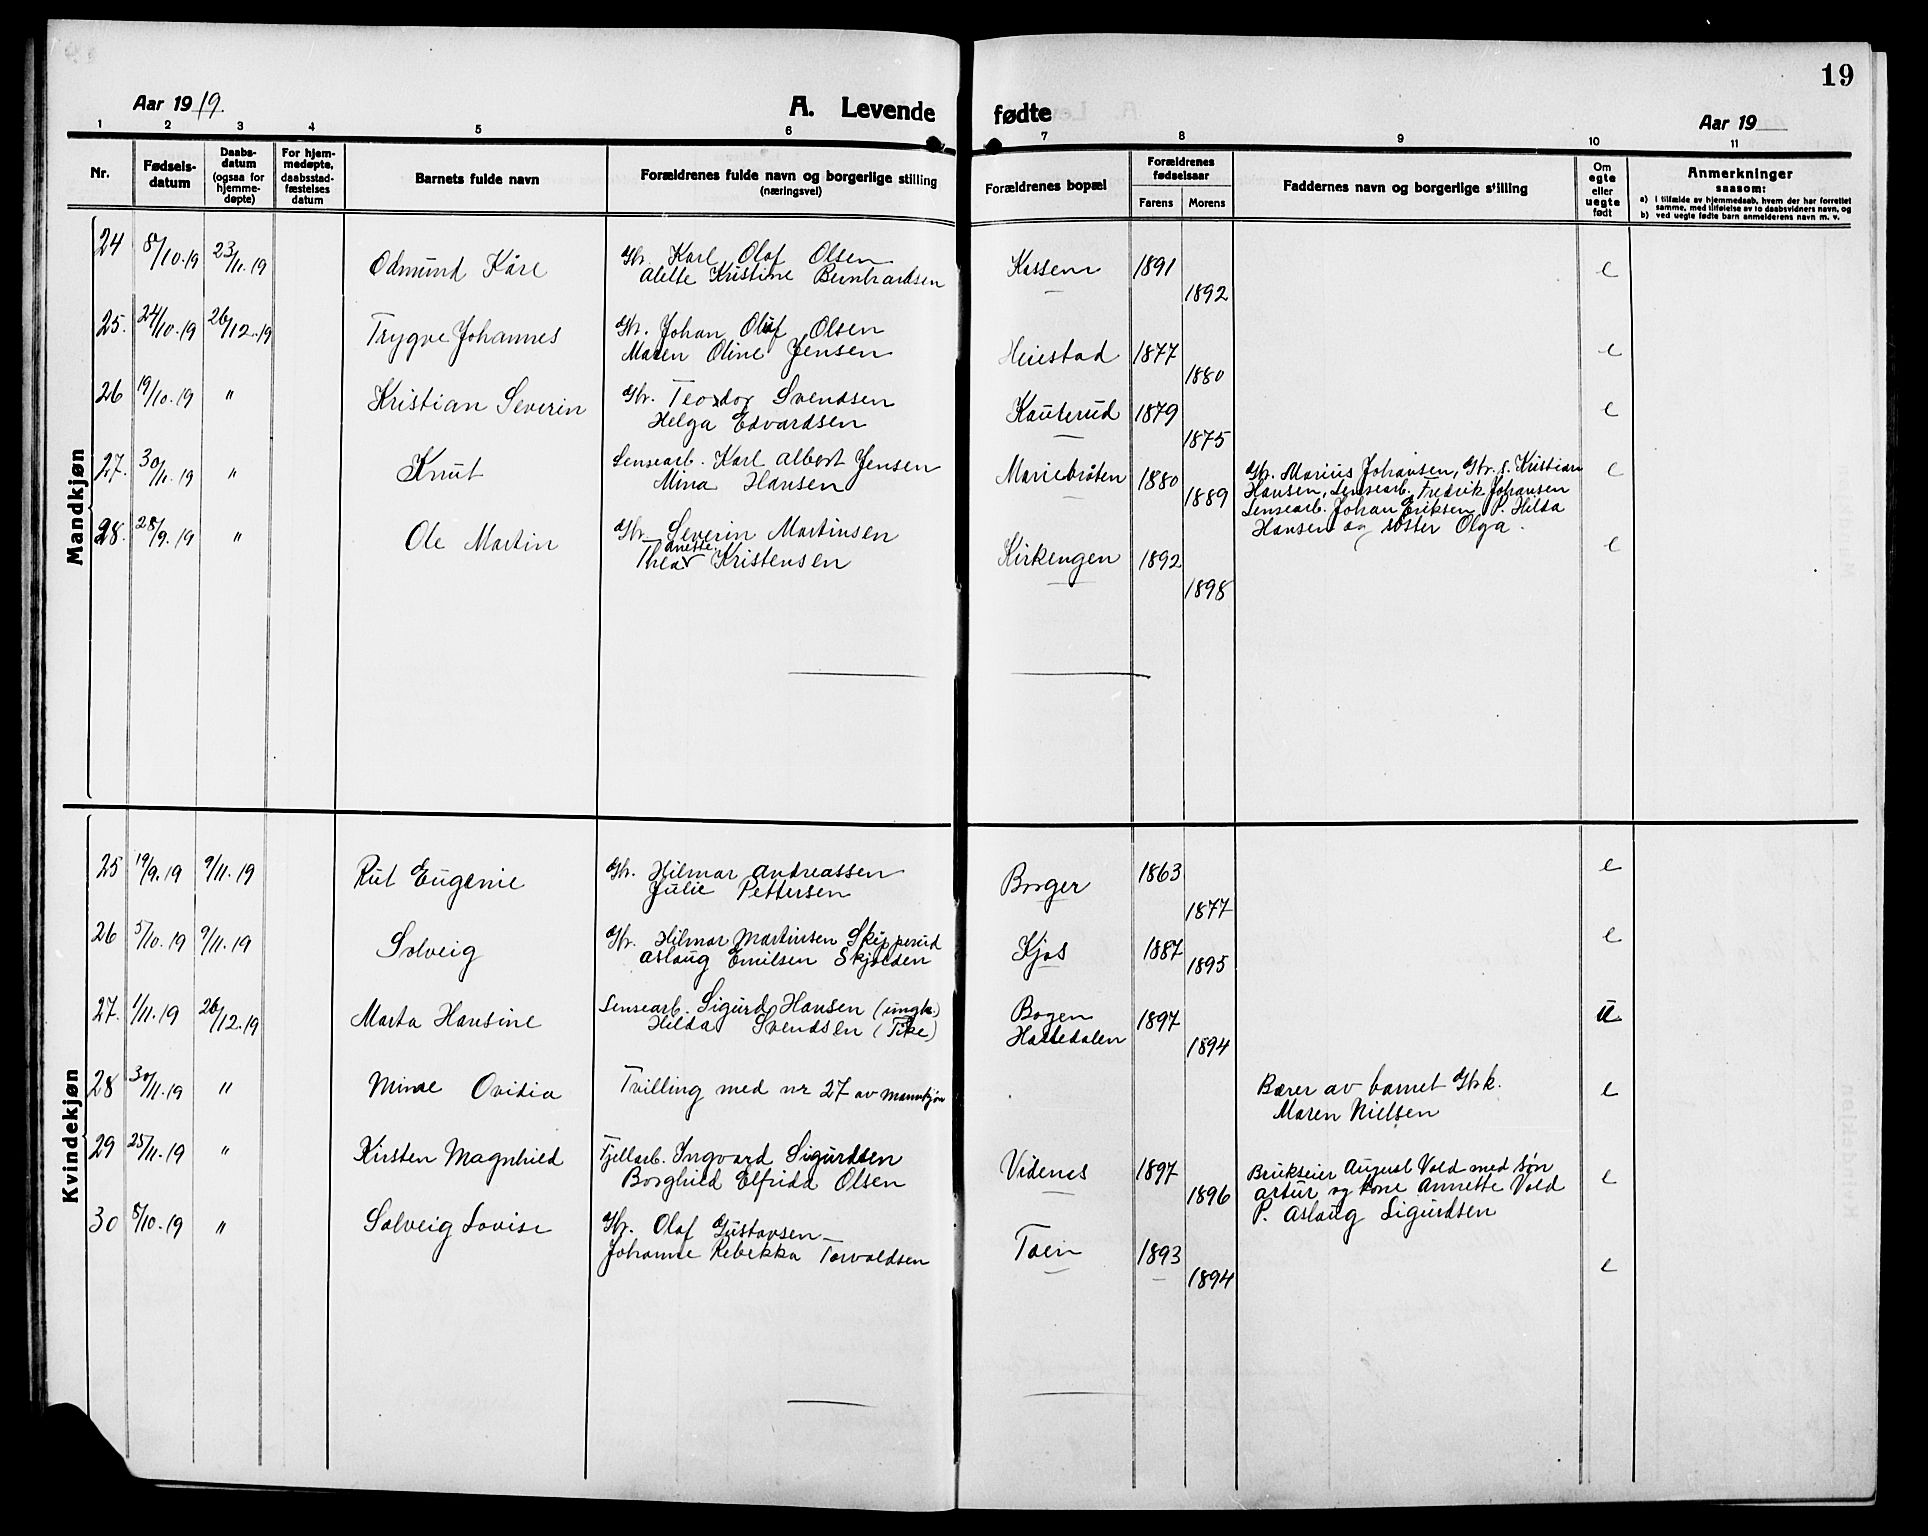 19
Aar 1919.
A. Levende fødte
Aar 19
1 2 3 4 5 6 7 8 9 10 11
Nr.
Fødsels-
datum
Daabs-
datum
(ogsaa for
hjemme-
døpte)
For hjem-
medøpte,
daabsstad-
fæstelses
datum
Barnets fulde navn
Forældrenes fulde navn og borgerlige stilling
(næringsvei)
Forældrenes bopæl
Forældrenes
fødselsaar
Farens Morens
Faddernes navn og borgerlige stilling
Om
egte
eller
uegte
født
Anmerkninger
saasom:
a) i tilfælde av hjemmedaab, hvem der har forrettet
samme, med tilføielse av to daabsvidners navn, og
b) ved uegte fødte barn anmelderens navn m. v.
Mandkjøn
24 8/10.19 23/11.19 Odmund Kåre Gbr. Karl Olaf Olsen Kassem 1891 e
Alette Kristine Bernhardsen 1892
25. 24/10.19 26/12.19 Trygve Johannes Gbr. Johan Oluf Olsen Heiestad 1877 e
Maren Oline Jensen 1880
26 19/10.19 " Kristian Severin Gbr. Teodor Svendsen Kauterud 1879 e
Helga Edvardsen 1875
27. 30/11.19 " Knut Lensearb. Karl Albert Jensen Mariebråten 1880 Gbr. Marius Johansen, Gbr. s. Kristian e
Mina Hansen 1889 Hansen, Lensearb. Fredrik Johansen
Lensearb. Johan Eriksen, P. Hilda
Hansen og søster Olga.
28. 28/9.19 " Ole Martin Gbr. Severin Martinsen Kirkengen 1892 e
Thea anette Kristensen 1898
Kvindekjøn
25 19/9.19 9/11.19 Rut Eugenie Gbr. Hilmar Andreassen Borger 1863 e
Julie Pettersen 1877
26 5/10.19 9/11.19 Solveig Gbr. Hilmar Martinsen Skipperud Kjøs 1887 e
Aslaug Emilsen Skjolden 1895
27. 1/11.19 26/12.19 Marta Hansine Lensearb. Sigurd Hansen (ungk.) Bogen 1897 u
Hilda Svendsen (Pike) Halledalen 1894
28 30/11.19 " Minne Ovidia Tvilling med nr 27 av mannkjøn Bærer av barnet Gbrk. e
Maren Nielsen
29 25/11.19 " Kirsten Magnhild Fjellarb. Ingvard Sigurdsen Videnes 1897 Brukseier August Vold med søn e
Borghild Elfrida Olsen 1896 Artur og kone Annette Vold
P. Aslaug Sigurdsen
30 8/10.19 " Solveig Lovise Gbr. Olaf Gustavsen Toen 1893 e
Johanne Rebekka Torvaldsen 1894